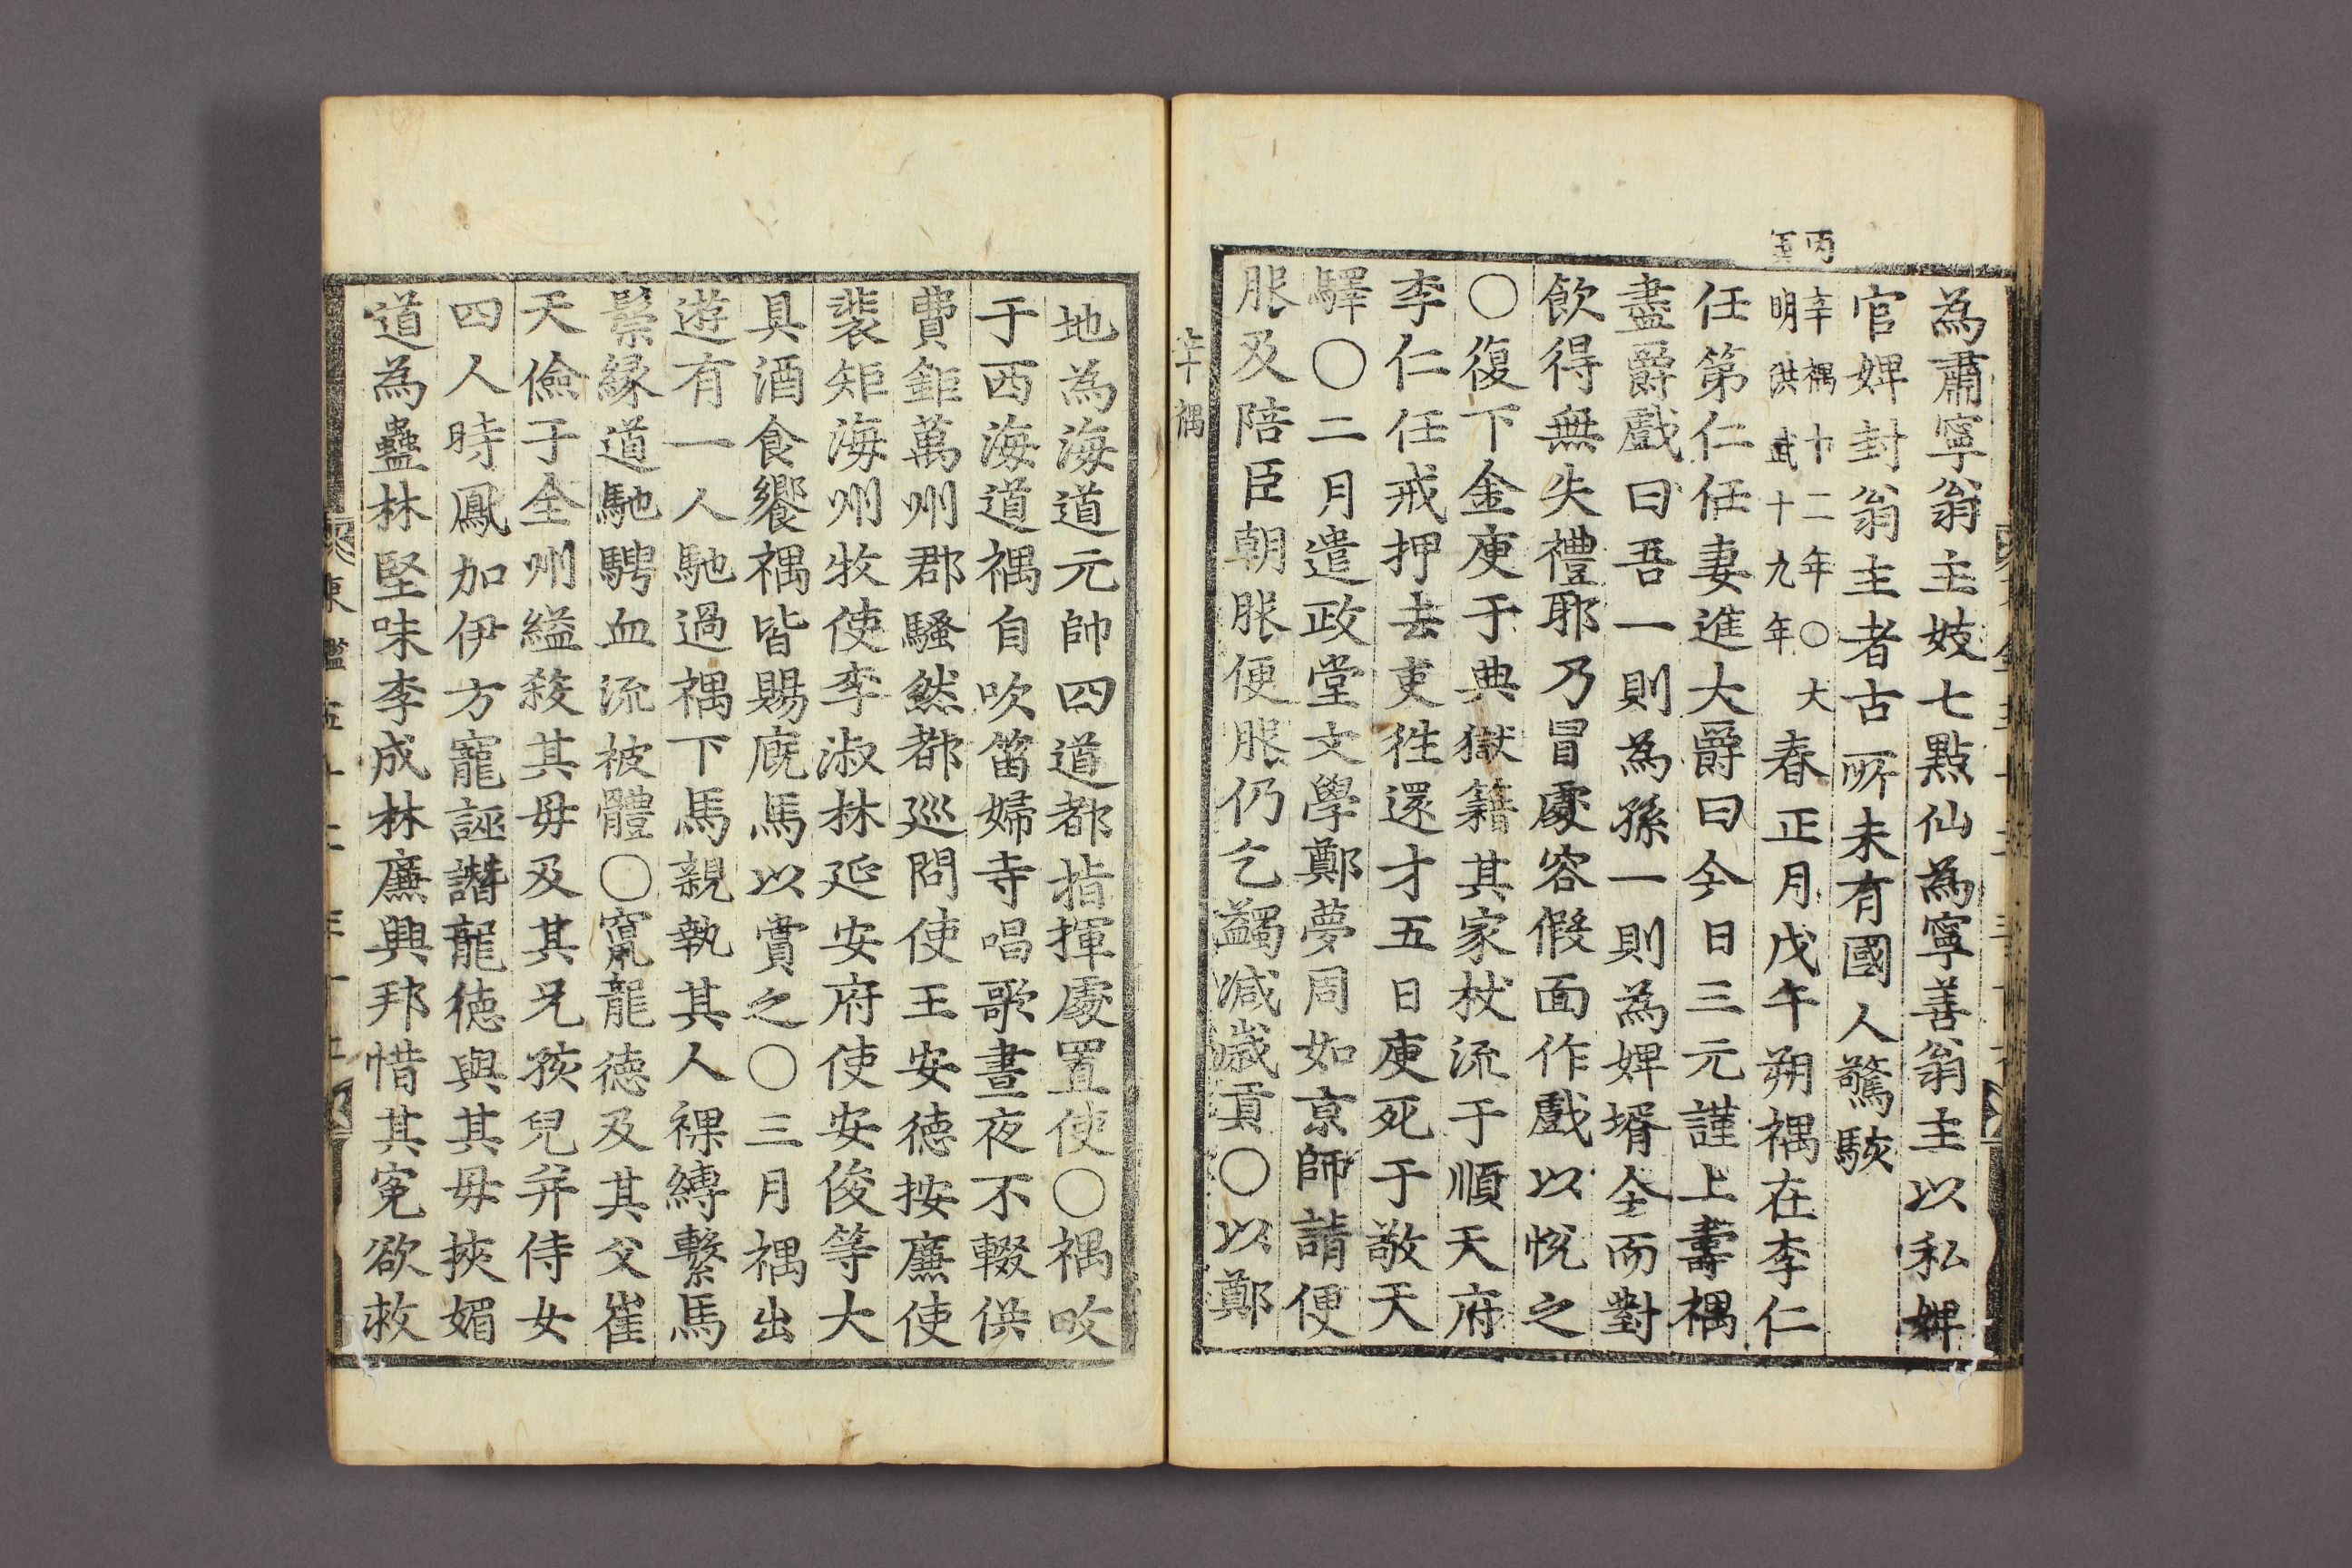 為肅寧翁主妓七點仙為寧善翁主以私婢
官婢封翁主者古所未有國人驚駭
丙寅
辛禑十二年○大
明洪武十九年
春正月戊午朔禑在李仁
任第仁任妻進大爵曰今日三元謹上壽禑
盡爵戲曰吾一則為孫一則為婢壻今而對
飮得無失禮耶乃冒處容假面作戲以悅之
○復下金庾于典獄籍其家杖流于順天府
李仁任戒押去吏徃還才五日庾死于敬天
驛○二月遣政堂文學鄭夢周如京師請便
服及陪臣朝服便服仍乞蠲减歲貢○以鄭
辛禑
地為海道元帥四道都指揮處置使○禑畋
于西海道禑自吹笛婦寺唱歌晝夜不輟供
費鉅萬州郡騷然都巡問使王安德按廉使
裴矩海州牧使李淑林延安府使安俊等大
具酒食饗禑皆賜廐馬以賞之○三月禑出
遊有一人馳過禑下馬親執其人裸縛繫馬
鬃緣道馳騁血流被體○竄龍德及其父崔
天儉于全州縊殺其母及其兄孩兒并侍女
四人時鳳加伊方寵誣譖龍德與其母挾媚
道為蠱林堅味李成林廉興邦惜其寃欲救